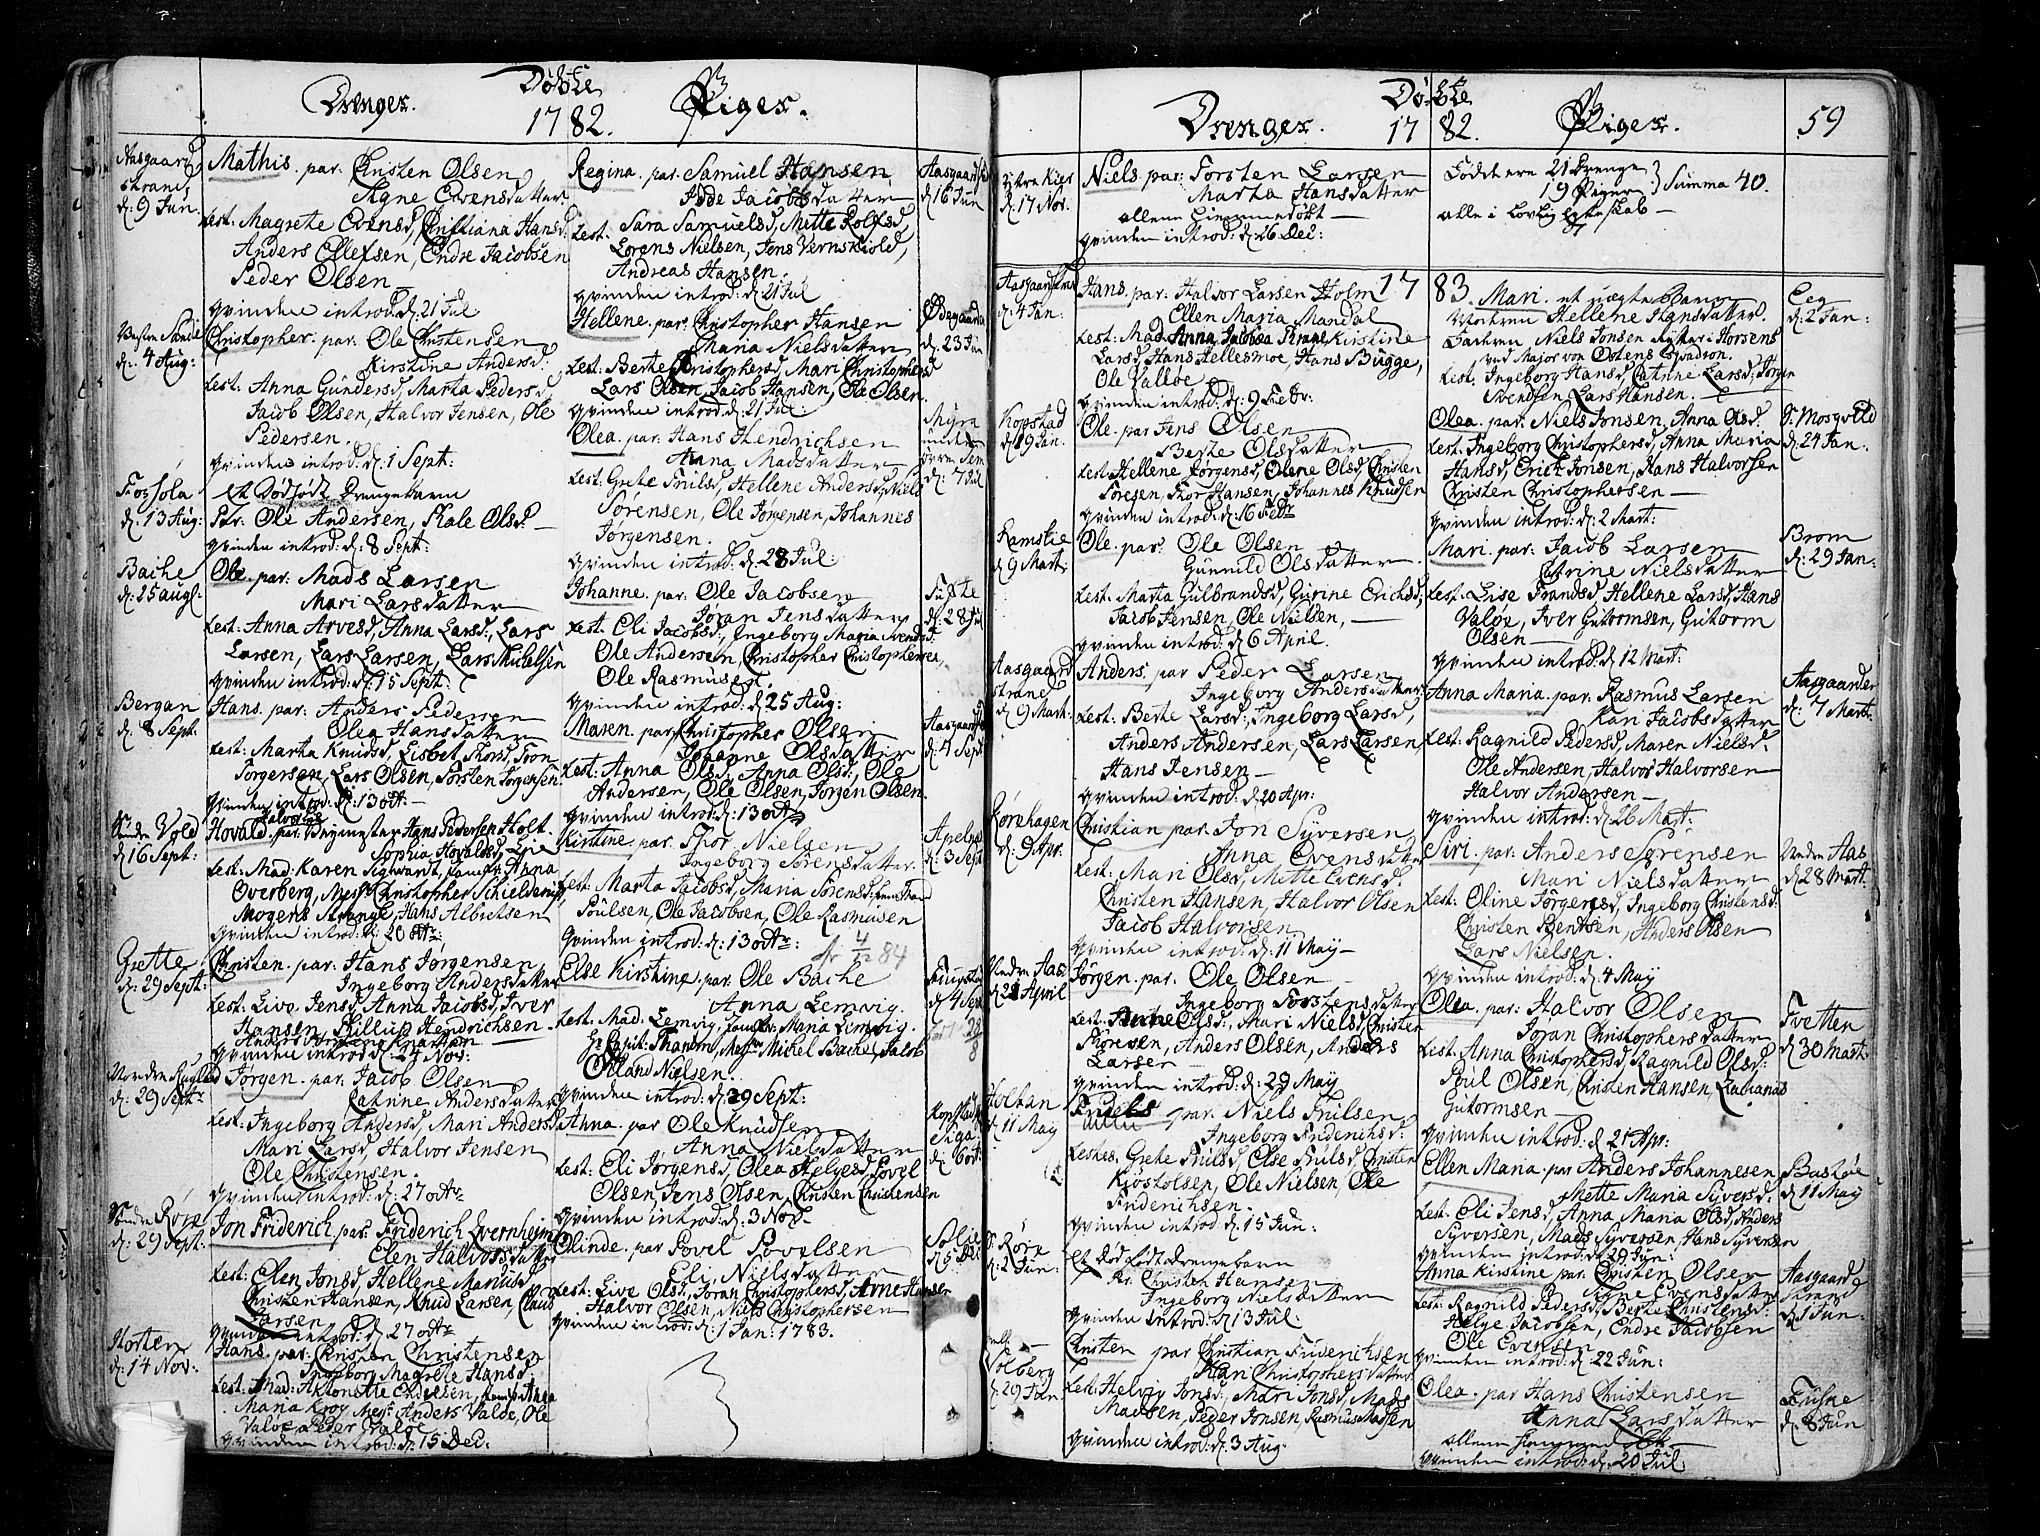 Døbte
Drenger. 1782. Piger.
Aasgaard
strand
d: 9 Jun.
Mathis. par. Christen Olsen
Signe Evensdatter
test. Magrete Evensd, Christiana Hansd:
Anders Ellefsen, Endre Jacobsen
Peder Olsen
qvinden introd: d: 21 Jul
d: 4 Aug:
Christopher. par: Ole Christensen
Kirstine Andersd.
test: Anna Gundersd, Marta Pedersd,
Jacob Olsen, Halvor Jensen, Ole
Pedersen.
qvinden introd: d: 1 Sept:
d: 13 Aug:
et Dødfødt Drengebarn
Par. Ole Andersen, Kale Olsd.
qvinden introd: d: 8 Sept:
Bache
d: 25 aug:
Ole. par: Mads Larsen
Mari Larsdatter
test: Anna Arvesd, Anna Larsd:, Lars
Larsen, Lars Larsen, Lars Michelsen
qvinden introd: d: 15 Sept:
Bergan
d: 8 Sept:
Hans. par: Anders Pedersen
Olea Hansdatter
test: Marta Knudsd, Lisbet Thorsd, Tron
Torgersen, Lars Olsen, Torsten Torgensen
qvinden introd: d: 13 octr:
Søndre Vold
d: 16 Sept:
Hovald. par: Hans Pedersen Holt.
Sophia Hovaldsd,
test: Mad: Karen Sigwardt, Anna
Overberg, Messrs Christopher Schielderup,
Mogens Strange, Hans Albretsen
qvinden introd: d: 20 octr:
Grette
d: 29 Sept:
Christen. par: Hans Jørgensen
Ingeborg Andersdatter
test: Live Jensd, Anna Jacobsd, Iver
Hansen, Phillip Hendrichsen
qvinden introd: d: 24 Nov:
d: 29 Septr
Jørgen. par: Jacob Olsen
Catrine Andersdatter
test: Ingeborg Andersd, Mari Andersd
Mari Larsd, Halvor Jensen
Ole Christensen.
qvinden introd: d: 27 octr
Søndre Røre
d: 29 Sept:
Jon Friderich par: Friderich Qvernheim
Elen Halvorsdatter
test: Elen Jonsd, Hellene
Christen Hansen, Knud Larsen, Claus
Larsen
qvinden introd: d: 27 octr
Horten
d: 14 Nov:
Hans. par: Christen Christensen
Ingeborg Magrete Hansd:
test: Mad: Antonette Endresen, Anna
Maria Kroy Messrs Anders Valøe, Ole
Valøe, Peder Valøe
qvinden introd: d: 15 Dec:
Regina. par: Samuel Hansen
Inde Jacobsdatter
test: Sara Samuelsd, Mette Rolfsd,
Lorens Nielsen, Jens Vernskiold,
Andreas Hansen.
qvinden introd: d: 21 Jul
d: 16 Jun
Hellene. par: Christopher Hansen
Maria Nielsdatter
test: Berte Christophersd, Mari Christophersd
Lars Olsen, Jacob Hansen, Ole Olsen
qvinden introd: d: 21 Jul:
Ødegaarden
d: 23 Jun
Olea. par: Hans Hendrichsen
Anna Madsdatter
test: Grete Poulsd, Hellene Andersd, Niels
Sørensen, Ole Jørgensen, Johannes
Jørgensen.
qvinden introd: d: 28 Jul:
Myre
d: 7 Jul
Johanne. par: Ole Jacobsen
Jøran Jensdatter
test: Eli Jacobsd:, Ingeborg Maria Svendsd:
Ole Andersen, Christopher Christophersen,
Ole Rasmussen.
qvinden introd: d: 25 Aug:
d: 28 Jul
Maren. par: Christopher Olsen
Johanne Olsdatter
test: Anna Olsd, Anna Olsd:, Ole
Andersen, Ole Olsen, Jørgen Olsen.
qvinden introd: d: 13 octr
d: 4 Sept
Kirstine. par: Thor Nielsen
Ingeborg Sørensdatter
test: Marta Jacobsd, Maria Sørensd:
Poulsen, Ole Jacobsen, Ole Rasmusen
qvinden introd: d: 13 octr:
4/12 84
d: 3 Sept
Else Kirstine. par: Ole Bache
Anna Lemvig.
test: Mad: Lemvig, Maria Lemvig.
Hr Capit: Thamm, Messrs Michel Bache, Jacob
Osland Nielsen.
qvinden introd: d: 29 Sept:
d: 4 Sept
28/8
Anna. par Ole Knudsen
Anna Nielsdatter
test: Eli Jørgensd, Olea Helgesd, Povel
Olsen, Jens Olsen, Christen Christensen
qvinden introd: d: 3 Nov
d: 6 oct:
Olinde. par Povel Povelsen
Eli Nielsdatter
test: Live Olsd, Joran Christophersd, Arne Hansen
Halvor Olsen, Niels Christophersen
qvinden introd: d: 1 Jan: 1783.
Solie
d: 5 Dec
Døbte
Drenger. 1782. Piger. 59
d: 17 Nov.
Niels. par: Torsten Larsen
Marta Hansdatter
allene hiemmedøbt
qvinden introd: d: 26 Dec:
Fødde ere 21 Drenge
19 Piger } Summa 40.
alle i Lovlig Egteskab
1783.
d: 4 Jan:
Hans. par: Halvor Larsen Holm
Ellen Maria Mandal
test: Mad: Anna Jacobea Strøm Kirstine
Larsd, Hans Hellesmoe, Hans Bugge,
Ole Valløe
qvinden introd: d: 9 Febr:
Kopstad
d: 19 Jan.
Ole. par Jens Olsen
Berte Olsdatter
test Hellene Jørgensd, Olene Olsd Christen
Toresen, Thor Hansen, Johannes Knudsen
qvinden introd: d: 16 Febr
Ramstie
d: 9 Mart:
Ole. par: Ole Olsen
Gunnild Olsdatter
test: Marta Gulbrandsd, Gurine Erichsd,
Jacob Jensen, Ole Nielsen,
qvinden introd: d: 6 April.
Aasgaard
strand
d: 9 Mart:
Anders. par Peder Larsen
Ingeborg Andersdatter
test: Berte Larsd:, Ingeborg Larsd,
Anders Andersen, Lars Larsen,
Hans Jensen
qvinden introd: d: 20 Apr:
Rørehagen
d: 9 Apr.
Christian par: Jon Syversen
Anna Evensdatter
test: Mari Olsd, Mette Evensd.
Christen Hansen, Halvor Olsen
Jacob Halvorsen
qvinden introd: d: 11 May
Nedre Aas
d: 21 April
Jørgen. par: Ole Olsen
Ingeborg Torstensdatter
test: Anne Olsd:, Mari Nielsd, Christen
Thoresen, Anders Olsen, Anders
Larsen
qvinden introd: d: 29 May
Holtan
d: 11 May
par: Niels Truelsen
Ingeborg Friderichsd:
testes. Grethe Truelsd, Else Truelsd, Christen
Kiøstolsen, Ole Nielsen, Ole
Friderichsen.
qvinden introd: d: 15 Jun:
S. Røre
d: 2 Jun:
et Død født Drengebarn
Par. Christen Hansen
Ingeborg Nielsdatter
qvinden introd: d: 13 Jul:
Solberg
d: 29 Jun
Christen par Christian Friderichsen
Kari Christophersdatter
test: Helvig Jonsd, Mari Jonsd, Mads
Madsen, Peder Jonsen, Rasmus Madsen
qvinden introd: d: 3 Aug:
Mari. et uægte Barn
Moderen Hellene Hansdatter.
Faderen Niels Jonsen Rytter i Horsens
ved Major von Ostens Esqvadron.
test: Ingeborg Hansd, Catrine Larsd, Jørgen
Svendsen, Lars Hansen.
Eeg
d: 2 Jan:
Olea. par: Niels Jonsen, Anna Olsd.
test: Ingeborg Christophersd, Anna Maria
Hansd, Erich Jonsen, Hans Halvorsen
Christen Christophersen
qvinden introd: d: 2 Mart:
d: 24 Jan:
Mari. par: Jacob Larsen
Catrine Nielsdatter
test: Lise Frandsd, Hellene Larsd, Hans
Valøe, Iver Gutormsen, Gutorm
Olsen
qvinden introd: d: 12 Mart:
Brom
d: 29 Jan:
Anna Maria. par: Rasmus Larsen
Kari Jacobsdatter
test: Ragnild Pedersd, Maren Nielsd:
Ole Andersen, Halvor Halvorsen
Halvor Andersen
qvinden introd: d: 26 Mart:
Aasgaarden
d: 7 Mart:
Siri. par: Anders Sørensen
Mari Nielsdatter
test: Oline Jørgensd, Ingeborg Christensd:
Christen Bentsen, Anders Olsen
Lars Nielsen.
qvinden introd: d: 4 May
Nedre Aas
d: 28 Mart.
Olea. par: Halvor Olsen
Jøran Christophersdatter
test: Anna Christophersd, Ragnild Olsd:
Poul Olsen, Christen Hansen, Zacharias
Gutormsen
qvinden introd: d: 21 Apr:
Tvetten
d: 30 Mart:
Ellen Maria. par Anders Johannesen
Mette Maria Syversd.
test. Eli Jensd, Anna Maria Olsd, Anders
Syversen, Mads Syversen, Hans Syversen
qvinden introd: d: 29 Jun:
Bastøe
d: 11 May
Anna Kirstine par: Christen Olsen
Signe Evensdatter
test: Ragnild Pedersd, Berthe Christensd:
Helge Jacobsen, Endre Jacobsen
Ole Evensen
qvinden introd: d: 22 Jun:
Aasgaard
strand
d: 1 Jun:
Olea. par Hans Christensen
Anna Larsdatter
allene hiemmedøbt
qvinden introd: d: 20 Jul
d: 8 Jun